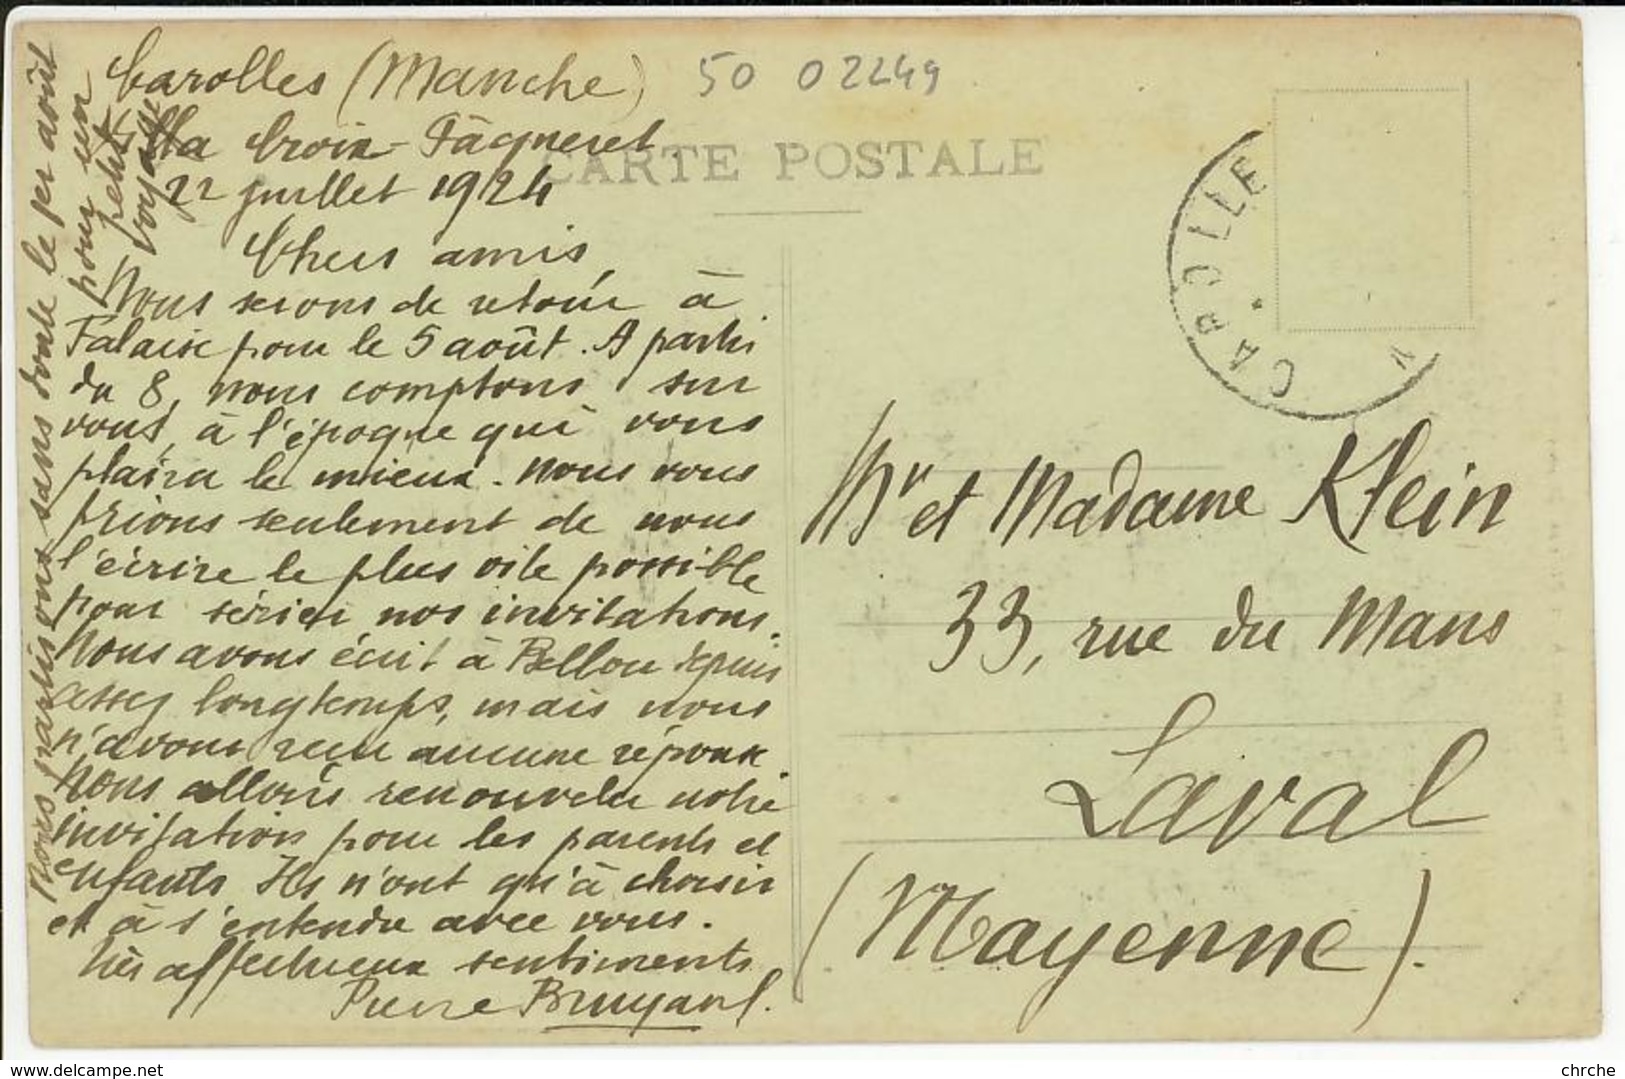 Carolles (Manche)
50 02249
Villa Croix-Fâgneret.
22 juillet 1924
CARTE POSTALE
Chers amis,
Nous serons de retour à
Falaise pour le 5 août. A partir
du 8, nous comptons sur
vous, à l'époque qui vous
plaira le mieux. Nous vous
prions seulement de nous
l'écrire le plus vite possible
pour sérier nos invitations.
Nous avons écrit à Bellou depuis
assez longtemps, mais nous
n'avons reçu aucune réponse.
Nous allons renouveler notre
invitation pour les parents et
enfants. Ils n'ont qu'à choisir
et à s'entendre avec vous.
Très affectueux sentiments
Pierre Bruyant.
Nous partirons sans doute le 1er août
pour un
petit
voyage
CAROLLE
Mr et Madame Klein
33, rue du Mans
Laval
(Mayenne).
www.delcampe.net
chrche